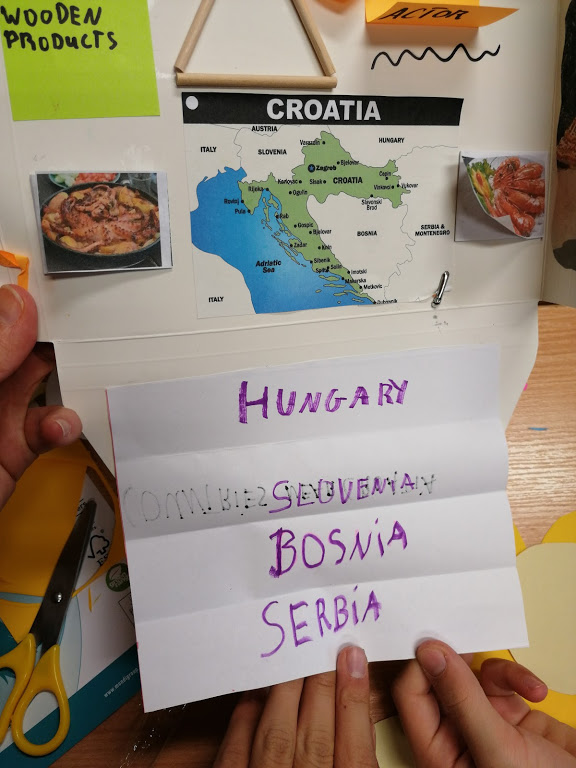 WOODEN
PRODUCTS
ACTOR
CROATIA
AUSTRIA
ITALY
SLOVENIA
HUNGARY
Varazdin
Bjelovar
Zagreb
Karlovac
Sisak
CROATIA
Cepin
Vinkovci
Vukovar
Rijeka
Ogulin
Rovinj
Pula
Rab
Slavonski
Brod
Gospic
Bjelovar
BOSNIA
SERBIA &
MONTENEGRO
Zadar
Knin
Adriatic
Sea
Sibenik
Split
Solin
Imotski
Makarska
Metkovic
ITALY
Dubrovnik
HUNGARY
SLOVENIA
BOSNiA
SERBiA